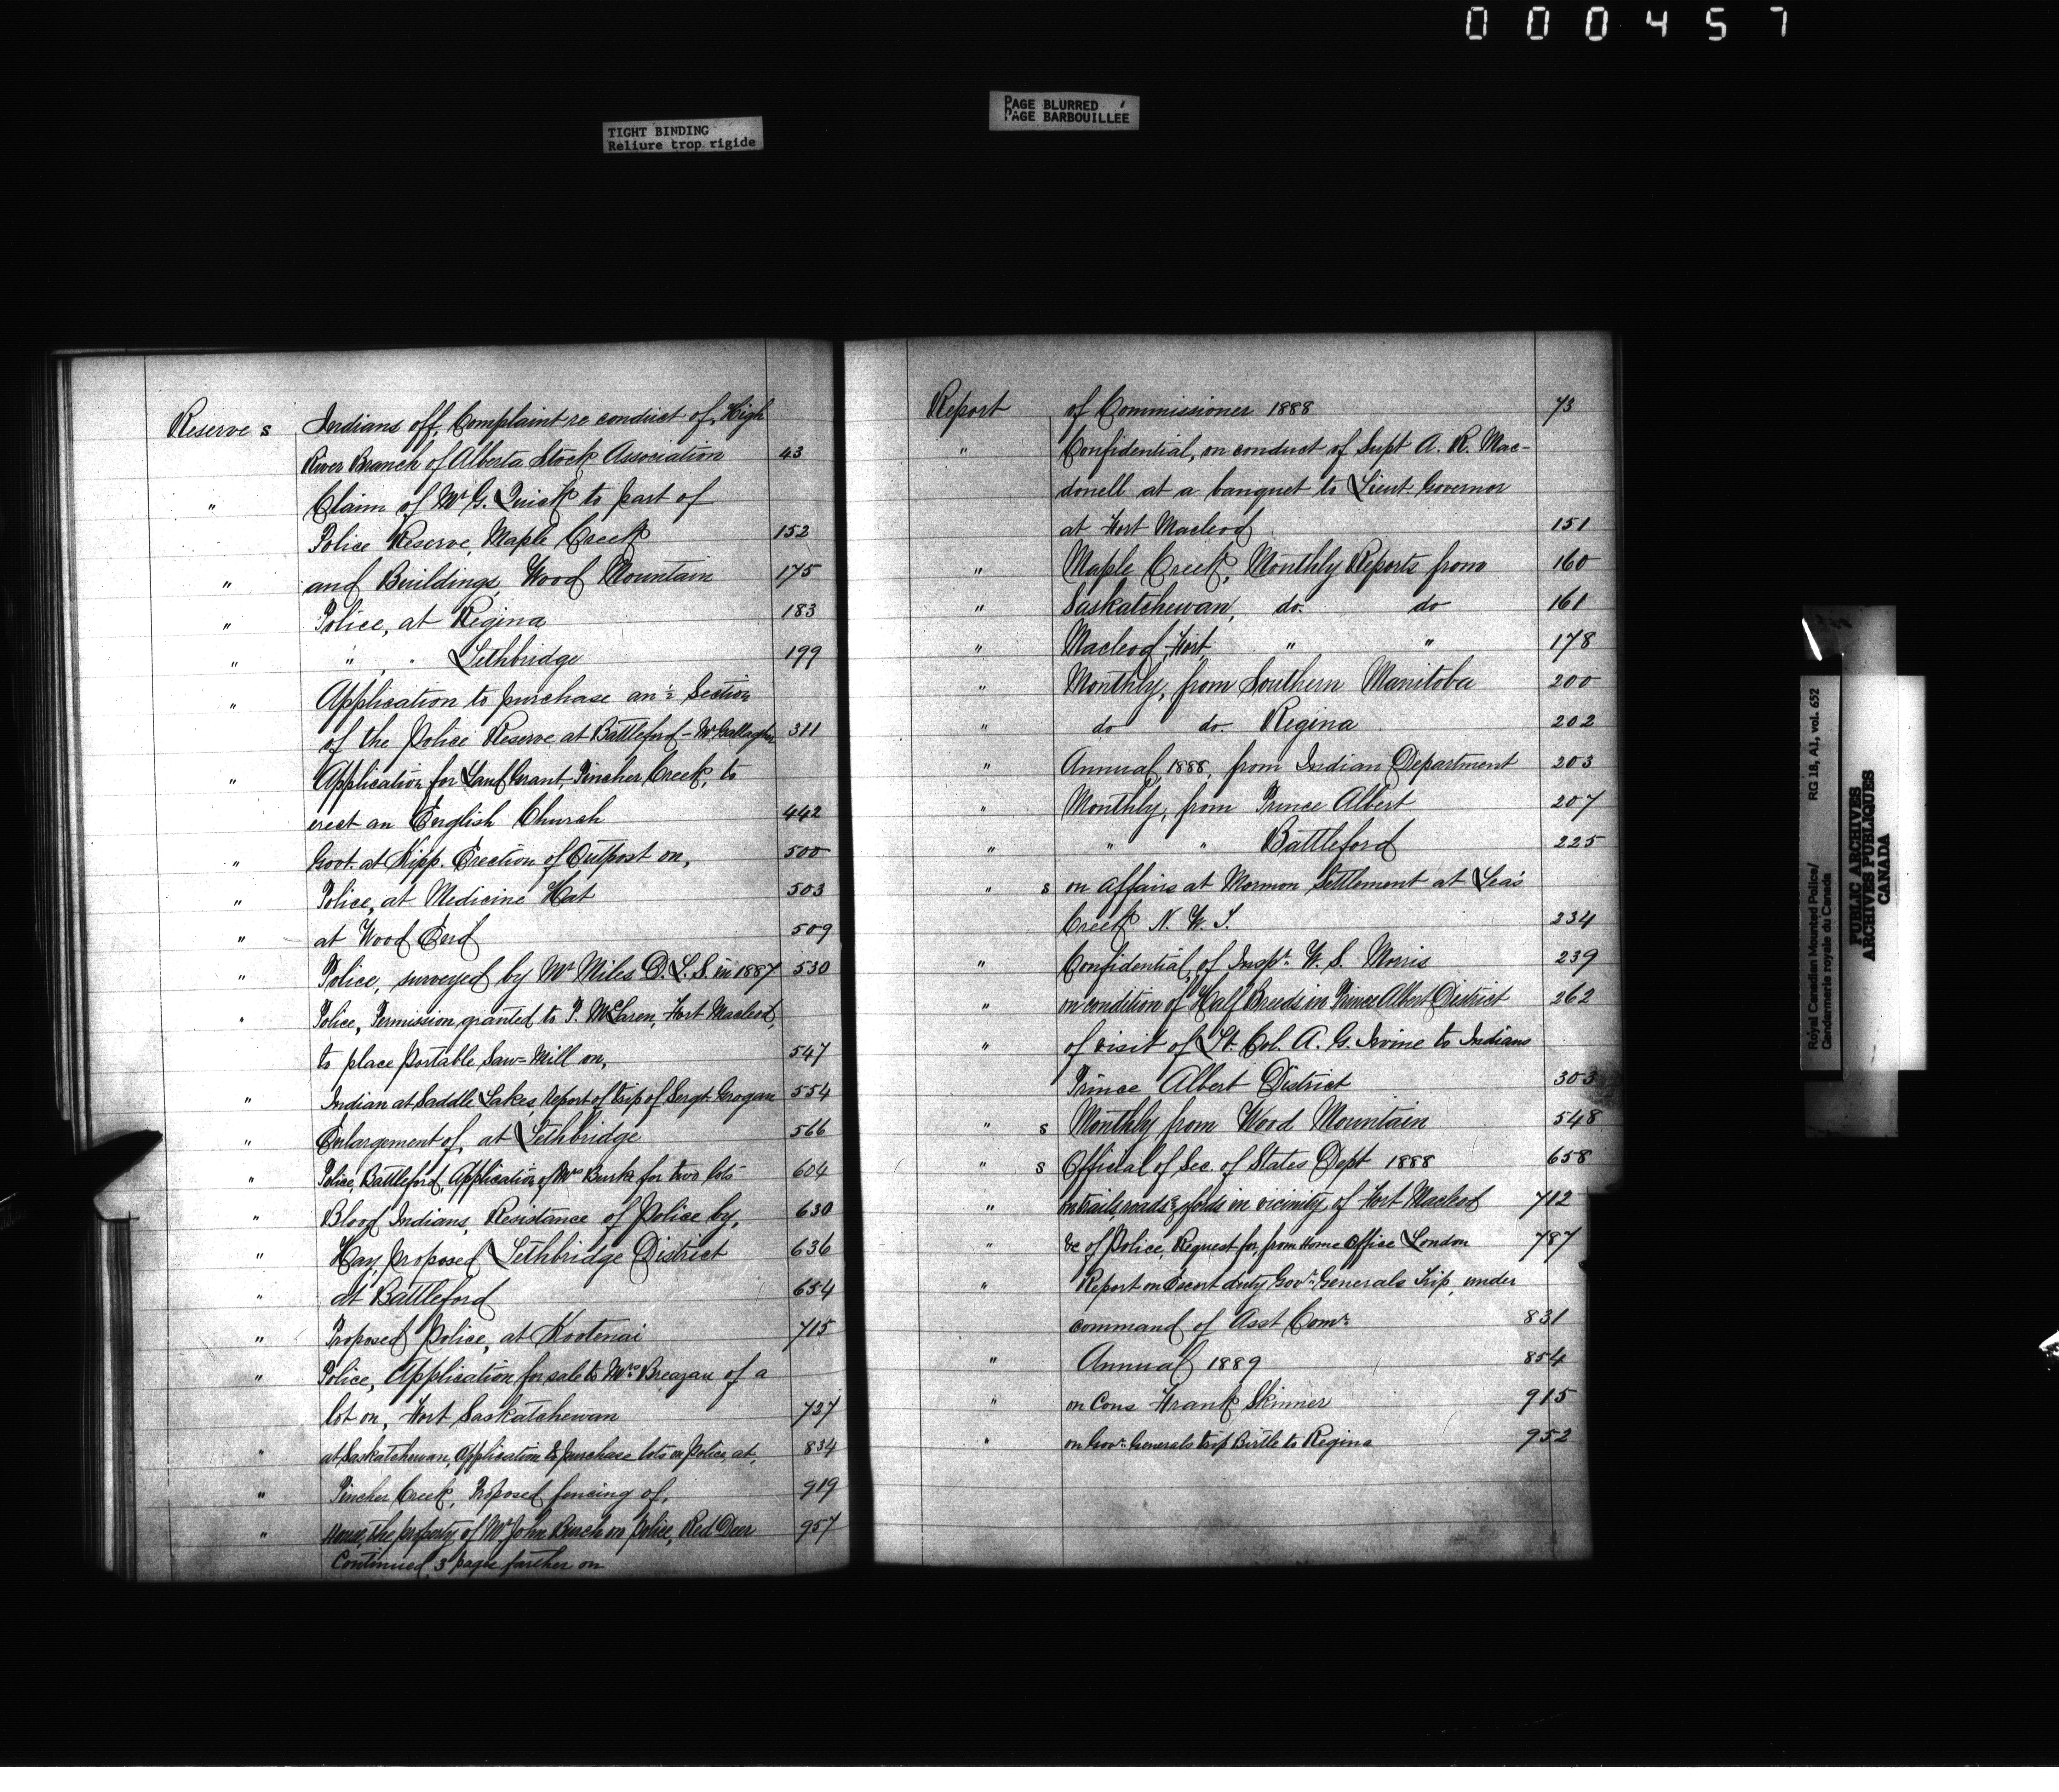 000457
TIGHT BINDING
Reliure trop rigide
PAGE BLURRED
PAGE BARBOUILLÉE
Reserve s Indians off, Complaint re conduct of, High
River Branch of Alberta Stock Association 43
" Claim of Mr G. Quick to part of
Police Reserve, Maple Creek 152
" and Buildings, Wood Mountain 175
" Police, at Regina 183
" " " Lethbridge 199
" Application to purchase an ½ Section
of the Police Reserve at Battleford - Mr Gallagher 311
" Application for Land Grant, Pincher Creek, to
erect an English Church 442
" Govt. at Kipp. Erection of Outpost on, 500
" Police, at Medicine Hat 503
" at Wood End 509
" Police, surveyed by Mr Miles D.L.S. in 1887 530
" Police, Permission granted to P. McLaren, Fort Macleod,
to place portable Saw-Mill on, 547
" Indian at Saddle Lakes, report of trip of Sergt. Grogan 554
" Enlargement of, at Lethbridge 566
" Police, Battleford, Application of Mrs Burke for two lots 604
" Blood Indians, Resistance of Police by, 630
" Hay, proposed Lethbridge District 636
" at Battleford 654
" Proposed Police, at Kootenai 715
" Police, Application for sale to Mrs Breazau of a
lot on, Fort Saskatchewan 727
" at Saskatchewan, Application to purchase lots on Police, at, 834
" Pincher Creek, Proposed fencing of, 919
" House, the property of Mr John Burch on Police, Red Deer 957
Continued 3 pages farther on
Report of Commissioner 1888 73
" Confidential, on conduct of Supt A. R. Mac-
donell at a banquet to Lieut. Governor
at Fort Macleod 151
" Maple Creek, Monthly Reports from 160
" Saskatchewan, do. do 161
" Macleod, Fort " " 178
" Monthly, from Southern Manitoba 200
" do do. Regina 202
" Annual, 1888, from Indian Department 203
" Monthly, from Prince Albert 207
" " " Battleford 225
" s on Affairs at Mormon Settlement at Lea's
Creek N. W. T. 234
" Confidential, of Inspr. W. S. Morris 239
" on condition of Half Breeds in Prince Albert District 262
" of visit of Lt. Col. A. G. Irvine to Indians
Prince Albert District 303
" s Monthly from Wood Mountain 548
" s Official of Sec. of States Dept 1888 658
" on trails, roads & fords in vicinity of Fort Macleod 712
" &c of Police, Request for, from Home Office London 787
" Report on Escort duty Govr. Generals Trip, under
command of Asst Comr. 831
" Annual 1889 854
" on Cons Frank Skinner 915
" on Govr. Generals trip Birtle to Regina 952
Royal Canadian Mounted Police/
Gendarmerie royale du Canada
RG 18, A1, vol. 652
PUBLIC ARCHIVES
ARCHIVES PUBLIQUES
CANADA